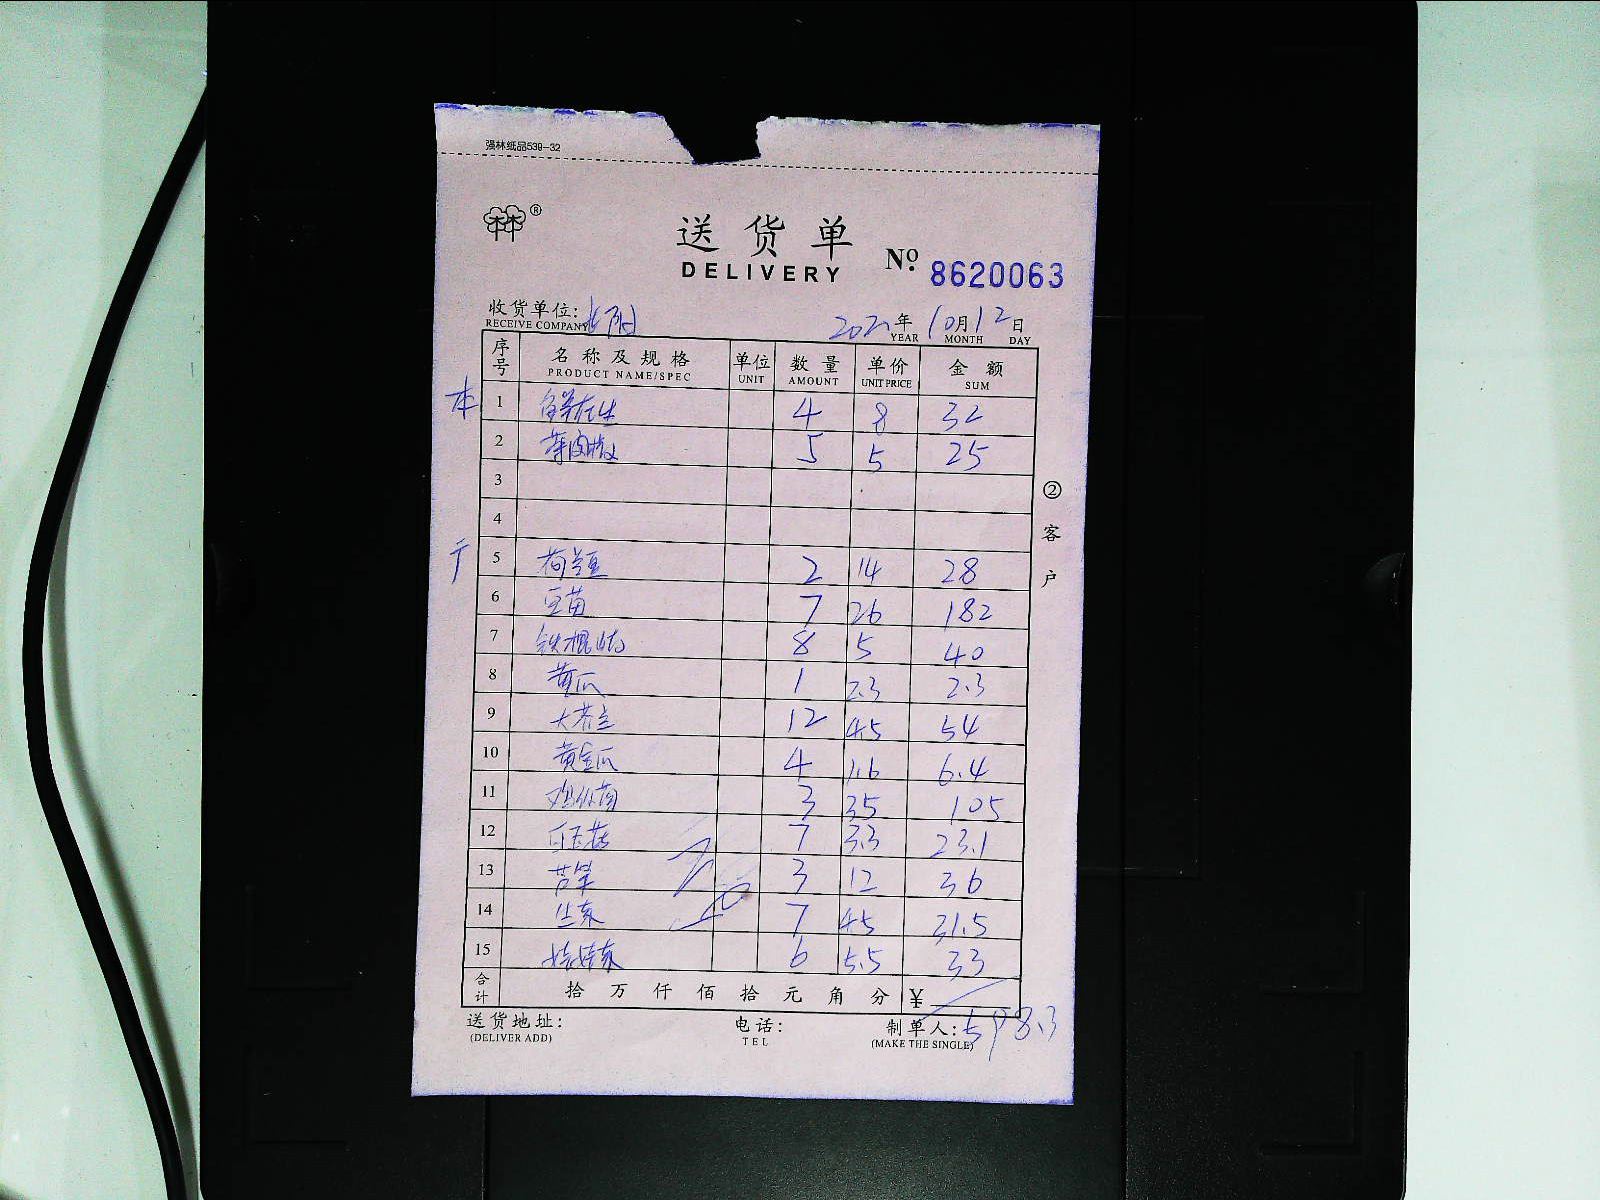 强林纸品539-32
®
送货单
DELIVERY
No. 8620063
收货单位:
RECEIVE COMPANY
年 10月12日
YEAR MONTH DAY
序号 名称及规格 单位 数量 单价 金额
PRODUCT NAME/SPEC UNIT AMOUNT UNIT PRICE SUM
本 1 4 8 32
2 5 5 25
3
4
5 荷兰豆 2 14 28
6 豆苗 7 26 182
7 8 5 40
8 黄瓜 1 2.3 2.3
9 12 4.5 54
10 黄金瓜 4 1.6 6.4
11 3 35 105
12 7 3.3 23.1
13 芦笋 3 12 36
14 生菜 7 4.5 31.5
15 娃娃菜 6 5.5 33
合计 拾 万 仟 佰 拾 元 角 分 ¥
598.3
送货地址: 电话: 制单人:
(DELIVER ADD) TEL (MAKE THE SINGLE)
② 客户